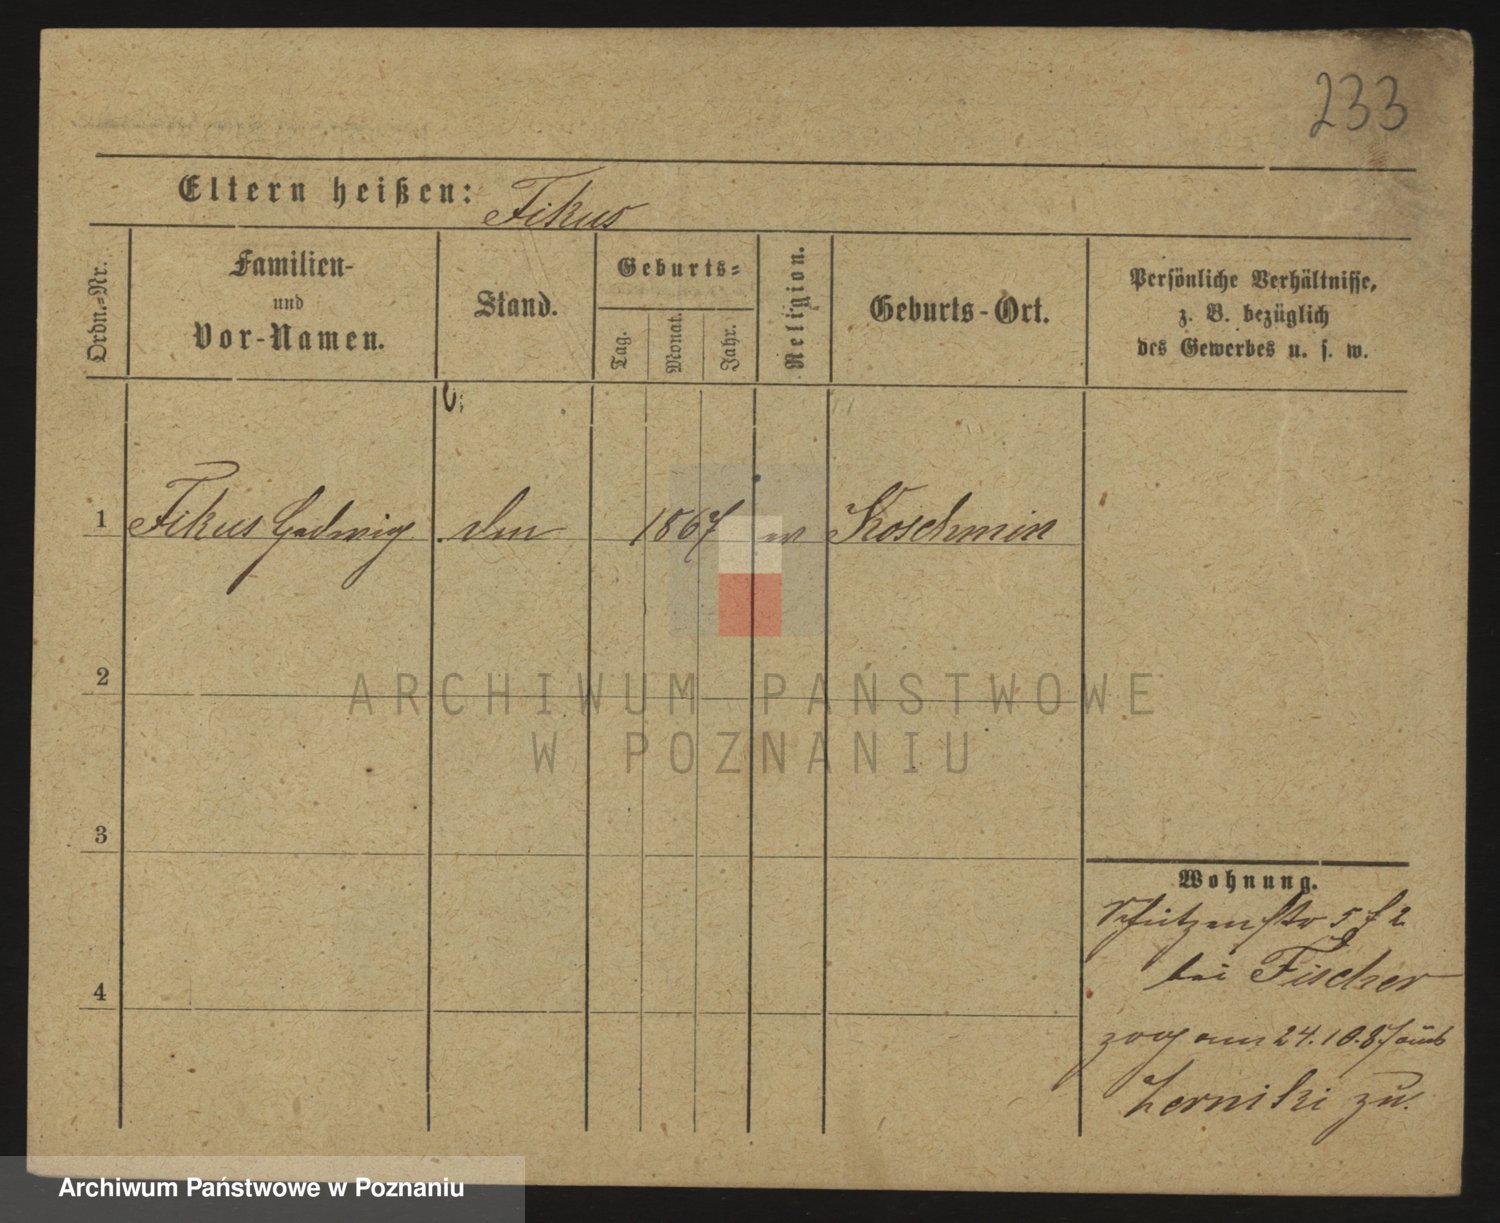 233
Eltern heißen: Fikus
Ordn.=Nr.
Familien-
und
Vor-Namen.
Stand.
Geburts=
Tag.
Monat.
Jahr.
Religion.
Geburts-Ort.
Persönliche Verhältnisse,
z. B. bezüglich
des Gewerbes u. s. w.
1 Fikus Hedwig 1867 Koschmin
2
ARCHIWUM PAŃSTWOWE
W POZNANIU
3
Wohnung.
Schützenstr 5
bei Fischer
4
zog am 24.10.87 aus
Zerniki zu.
Archiwum Państwowe w Poznaniu